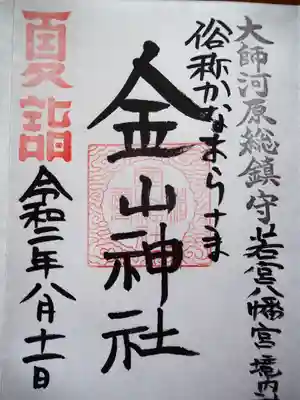 大師河原総鎮守 若宮八幡宮 境内社
俗称かなまらさま
金山神社
夏詣
令和二年八月十一日